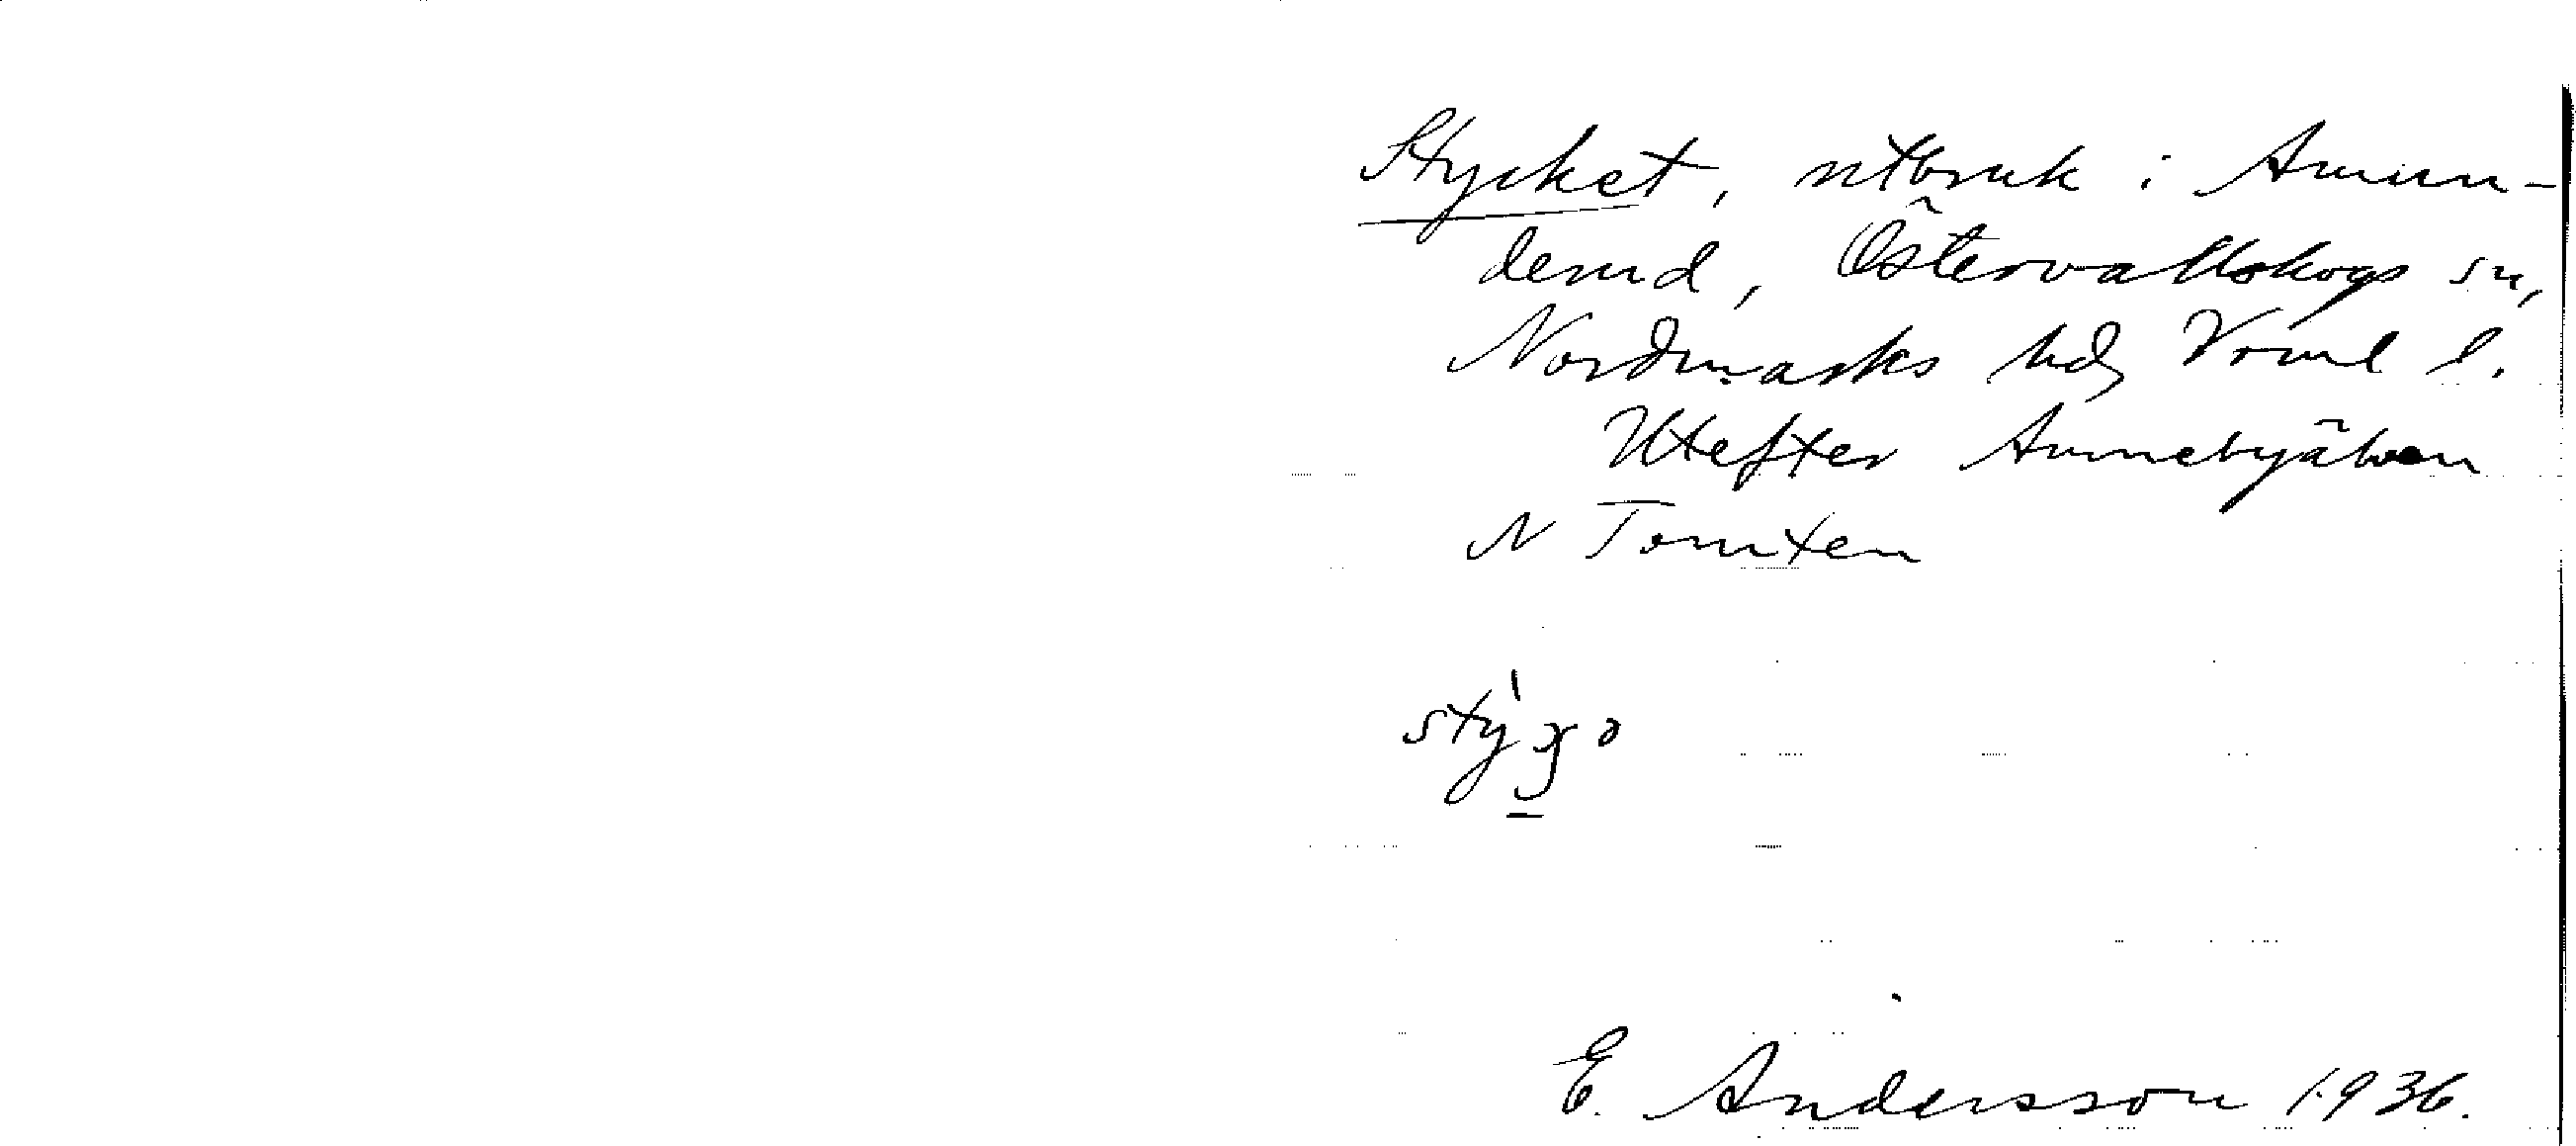 Stycket, utbruk i Amun-
derud, Östervallskogs sn,
Nordmarks hd, Vrml l.
Utefter Annebyälven
N Tomten
E. Andersson 1936.